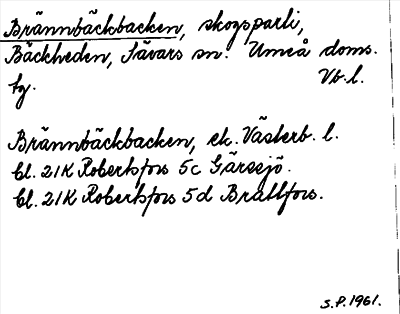 Brännbäckbacken, skogsparti,
Bäckheden, Sävars sn. Umeå doms.
fg. Vb.l.
Brännbäckbacken, ek. Västerb. l.
bl. 21K Robertsfors 5c Gärssjö.
bl. 21K Robertsfors 5d Brattfors.
S.P. 1961.